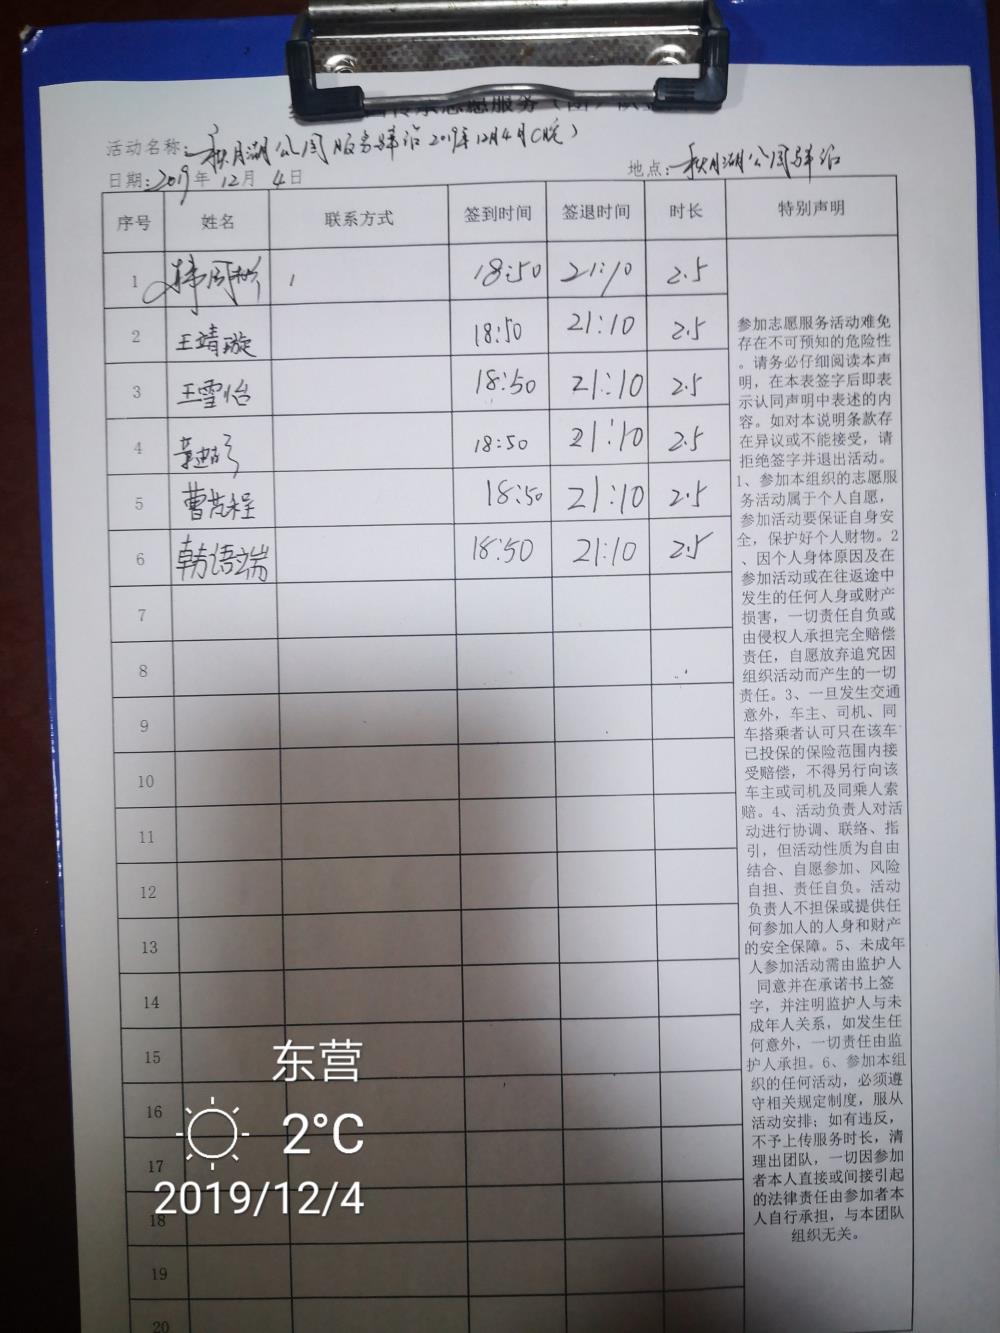 传承志愿服务（团）队
活动名称：秋月湖公园服务驿站2019年12月4日（晚）
日期：2019年12月4日 地点：秋月湖公园驿站
序号 姓名 联系方式 签到时间 签退时间 时长 特别声明
1 18:50 21:10 2.5
2 王靖璇 18:50 21:10 2.5
3 王雪怡 18:50 21:10 2.5
4 18:50 21:10 2.5
5 曹梵程 18:50 21:10 2.5
6 韩语端 18:50 21:10 2.5
7
8
9
10
11
12
13
14
15
16
17
18
19
20
参加志愿服务活动难免
存在不可预知的危险性
。请务必仔细阅读本声
明，在本表签字后即表
示认同声明中表述的内
容。如对本说明条款存
在异议或不能接受，请
拒绝签字并退出活动。
1、参加本组织的志愿服
务活动属于个人自愿，
参加活动要保证自身安
全，保护好个人财物。2
、因个人身体原因及在
参加活动或在往返途中
发生的任何人身或财产
损害，一切责任自负或
由侵权人承担完全赔偿
责任，自愿放弃追究因
组织活动而产生的一切
责任。3、一旦发生交通
意外，车主、司机、同
车搭乘者认可只在该车
已投保的保险范围内接
受赔偿，不得另行向该
车主或司机及同乘人索
赔。4、活动负责人对活
动进行协调、联络、指
引，但活动性质为自由
结合、自愿参加、风险
自担、责任自负。活动
负责人不担保或提供任
何参加人的人身和财产
的安全保障。5、未成年
人参加活动需由监护人
同意并在承诺书上签
字，并注明监护人与未
成年人关系，如发生任
何意外，一切责任由监
护人承担。6、参加本组
织的任何活动，必须遵
守相关规定制度，服从
活动安排；如有违反，
不予上传服务时长，清
理出团队，一切因参加
者本人直接或间接引起
的法律责任由参加者本
人自行承担，与本团队
组织无关。
东营
2°C
2019/12/4